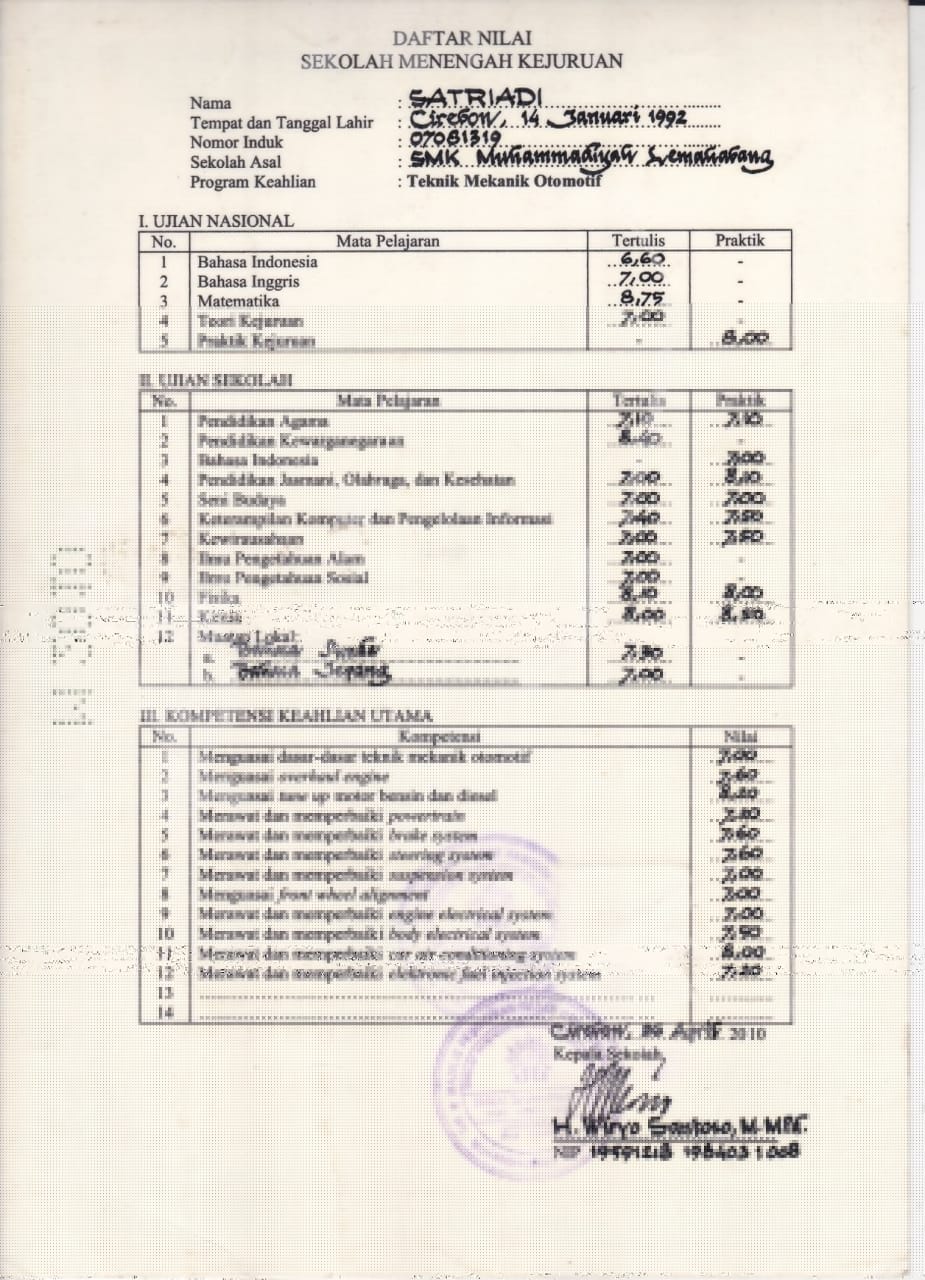 DAFTAR NILAI
SEKOLAH MENENGAH KEJURUAN
Nama : SATRIADI
Tempat dan Tanggal Lahir : Cirebon, 14 Januari 1992
Nomor Induk : 07081319
Sekolah Asal : SMK Muhammadiyah Lemahabang
Program Keahlian : Teknik Mekanik Otomotif
I. UJIAN NASIONAL
No. Mata Pelajaran Tertulis Praktik
1 Bahasa Indonesia 6,60 -
2 Bahasa Inggris 7,00 -
3 Matematika 8,75 -
4 Teori Kejuruan 7,00 -
5 Praktik Kejuruan - 8,00
II. UJIAN SEKOLAH
No. Mata Pelajaran Tertulis Praktik
1 Pendidikan Agama 7,10 7,10
2 Pendidikan Kewarganegaraan 8,40 -
3 Bahasa Indonesia - 7,00
4 Pendidikan Jasmani, Olahraga, dan Kesehatan 7,00
5 Seni Budaya 7,00 7,00
6 Keterampilan Komputer dan Pengelolaan Informasi 7,40
7 Kewirausahaan 7,00
8 Ilmu Pengetahuan Alam 7,00 -
9 Ilmu Pengetahuan Sosial 7,00 -
10 Fisika 8,10 8,00
11 Kimia 8,00
12 Muatan Lokal:
a. Bahasa -
b. Bahasa Jepang 7,00 -
III. KOMPETENSI KEAHLIAN UTAMA
No. Kompetensi Nilai
1 Menguasai dasar-dasar teknik mekanik otomotif 7,00
2 Menguasai overhaul engine 7,60
3 Menguasai tune up motor bensin dan diesel
4 Merawat dan memperbaiki powertrain
5 Merawat dan memperbaiki brake system 7,60
6 Merawat dan memperbaiki steering system 7,60
7 Merawat dan memperbaiki suspension system 7,00
8 Menguasai front wheel alignment 7,00
9 Merawat dan memperbaiki engine electrical system 7,00
10 Merawat dan memperbaiki body electrical system
11 Merawat dan memperbaiki car air conditioning system 8,00
12 Merawat dan memperbaiki elektronic fuel injection system
13
14
Cirebon, April 2010
Kepala Sekolah,
H. Wiryo Santoso, M.MPd.
NIP 19591213 198403 1 008